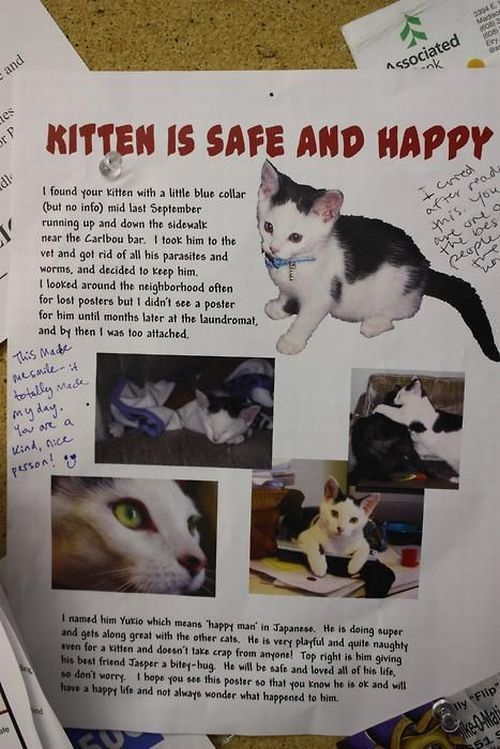 Associated
3394 E.
Madison
(608)
(608)
KITTEN IS SAFE AND HAPPY
I found your kitten with a little blue collar
(but no info) mid last September
running up and down the sidewalk
near the Caribou bar. I took him to the
vet and got rid of all his parasites and
worms, and decided to keep him.
I looked around the neighborhood often
for lost posters but I didn't see a poster
for him until months later at the laundromat,
and by then I was too attached.
I cried
after reading
this. You
are one of
the best
people
This Made
me smile - it
totally made
my day.
You are a
kind, nice
person!
I named him Yukio which means 'happy man' in Japanese. He is doing super
and gets along great with the other cats. He is very playful and quite naughty
even for a kitten and doesn't take crap from anyone! Top right is him giving
his best friend Jasper a bitey-hug. He will be safe and loved all of his life,
so don't worry. I hope you see this poster so that you know he is ok and will
have a happy life and not always wonder what happened to him.
and
"Flip"